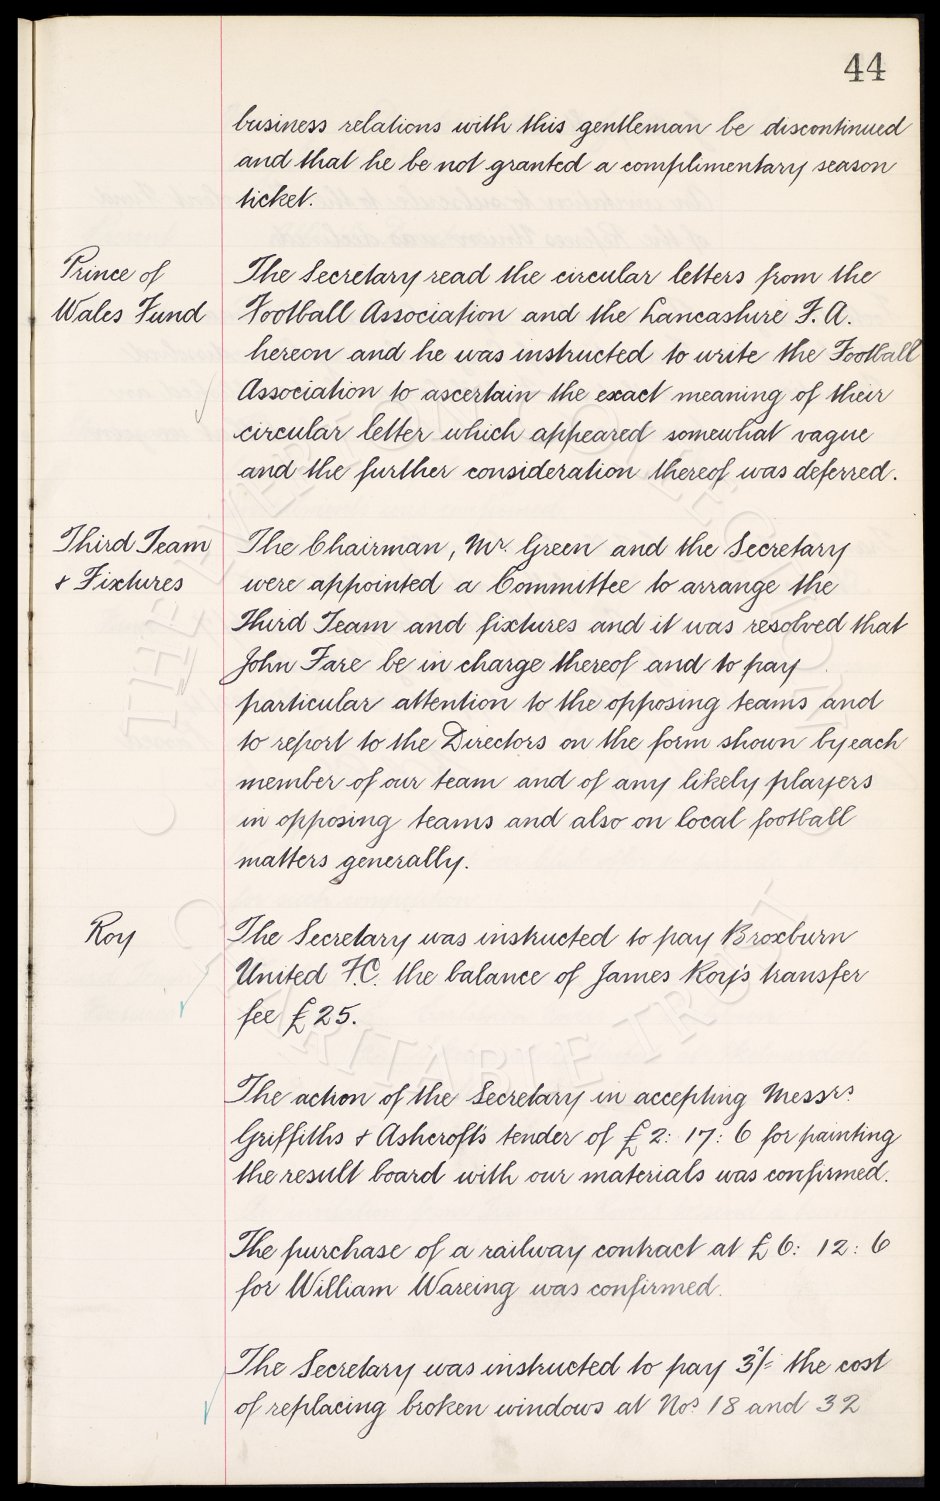 44
business relations with this gentleman be discontinued
and that he be not granted a complimentary season
ticket.
Prince of
Wales Fund
The Secretary read the circular letters from the
Football Association and the Lancashire F. A.
hereon and he was instructed to write the Football
Association to ascertain the exact meaning of their
circular letter which appeared somewhat vague
and the further consideration thereof was deferred.
Third Team
& Fixtures
The Chairman, Mr. Green and the Secretary
were appointed a Committee to arrange the
Third Team and fixtures and it was resolved that
John Fare be in charge thereof and to pay
particular attention to the opposing teams and
to report to the Directors on the form shown by each
member of our team and of any likely players
in opposing teams and also on local football
matters generally.
Roy
The Secretary was instructed to pay Broxburn
United F.C. the balance of James Roy's transfer
fee £25.
The action of the Secretary in accepting Messrs.
Griffiths & Ashcroft's tender of £2: 17: 6 for painting
the result board with our materials was confirmed.
The purchase of a railway contract at £6: 12: 6
for William Wareing was confirmed.
The Secretary was instructed to pay 3/- the cost
of replacing broken windows at Nos 18 and 32
THE EVERTON COLLECTION
CHARITABLE TRUST